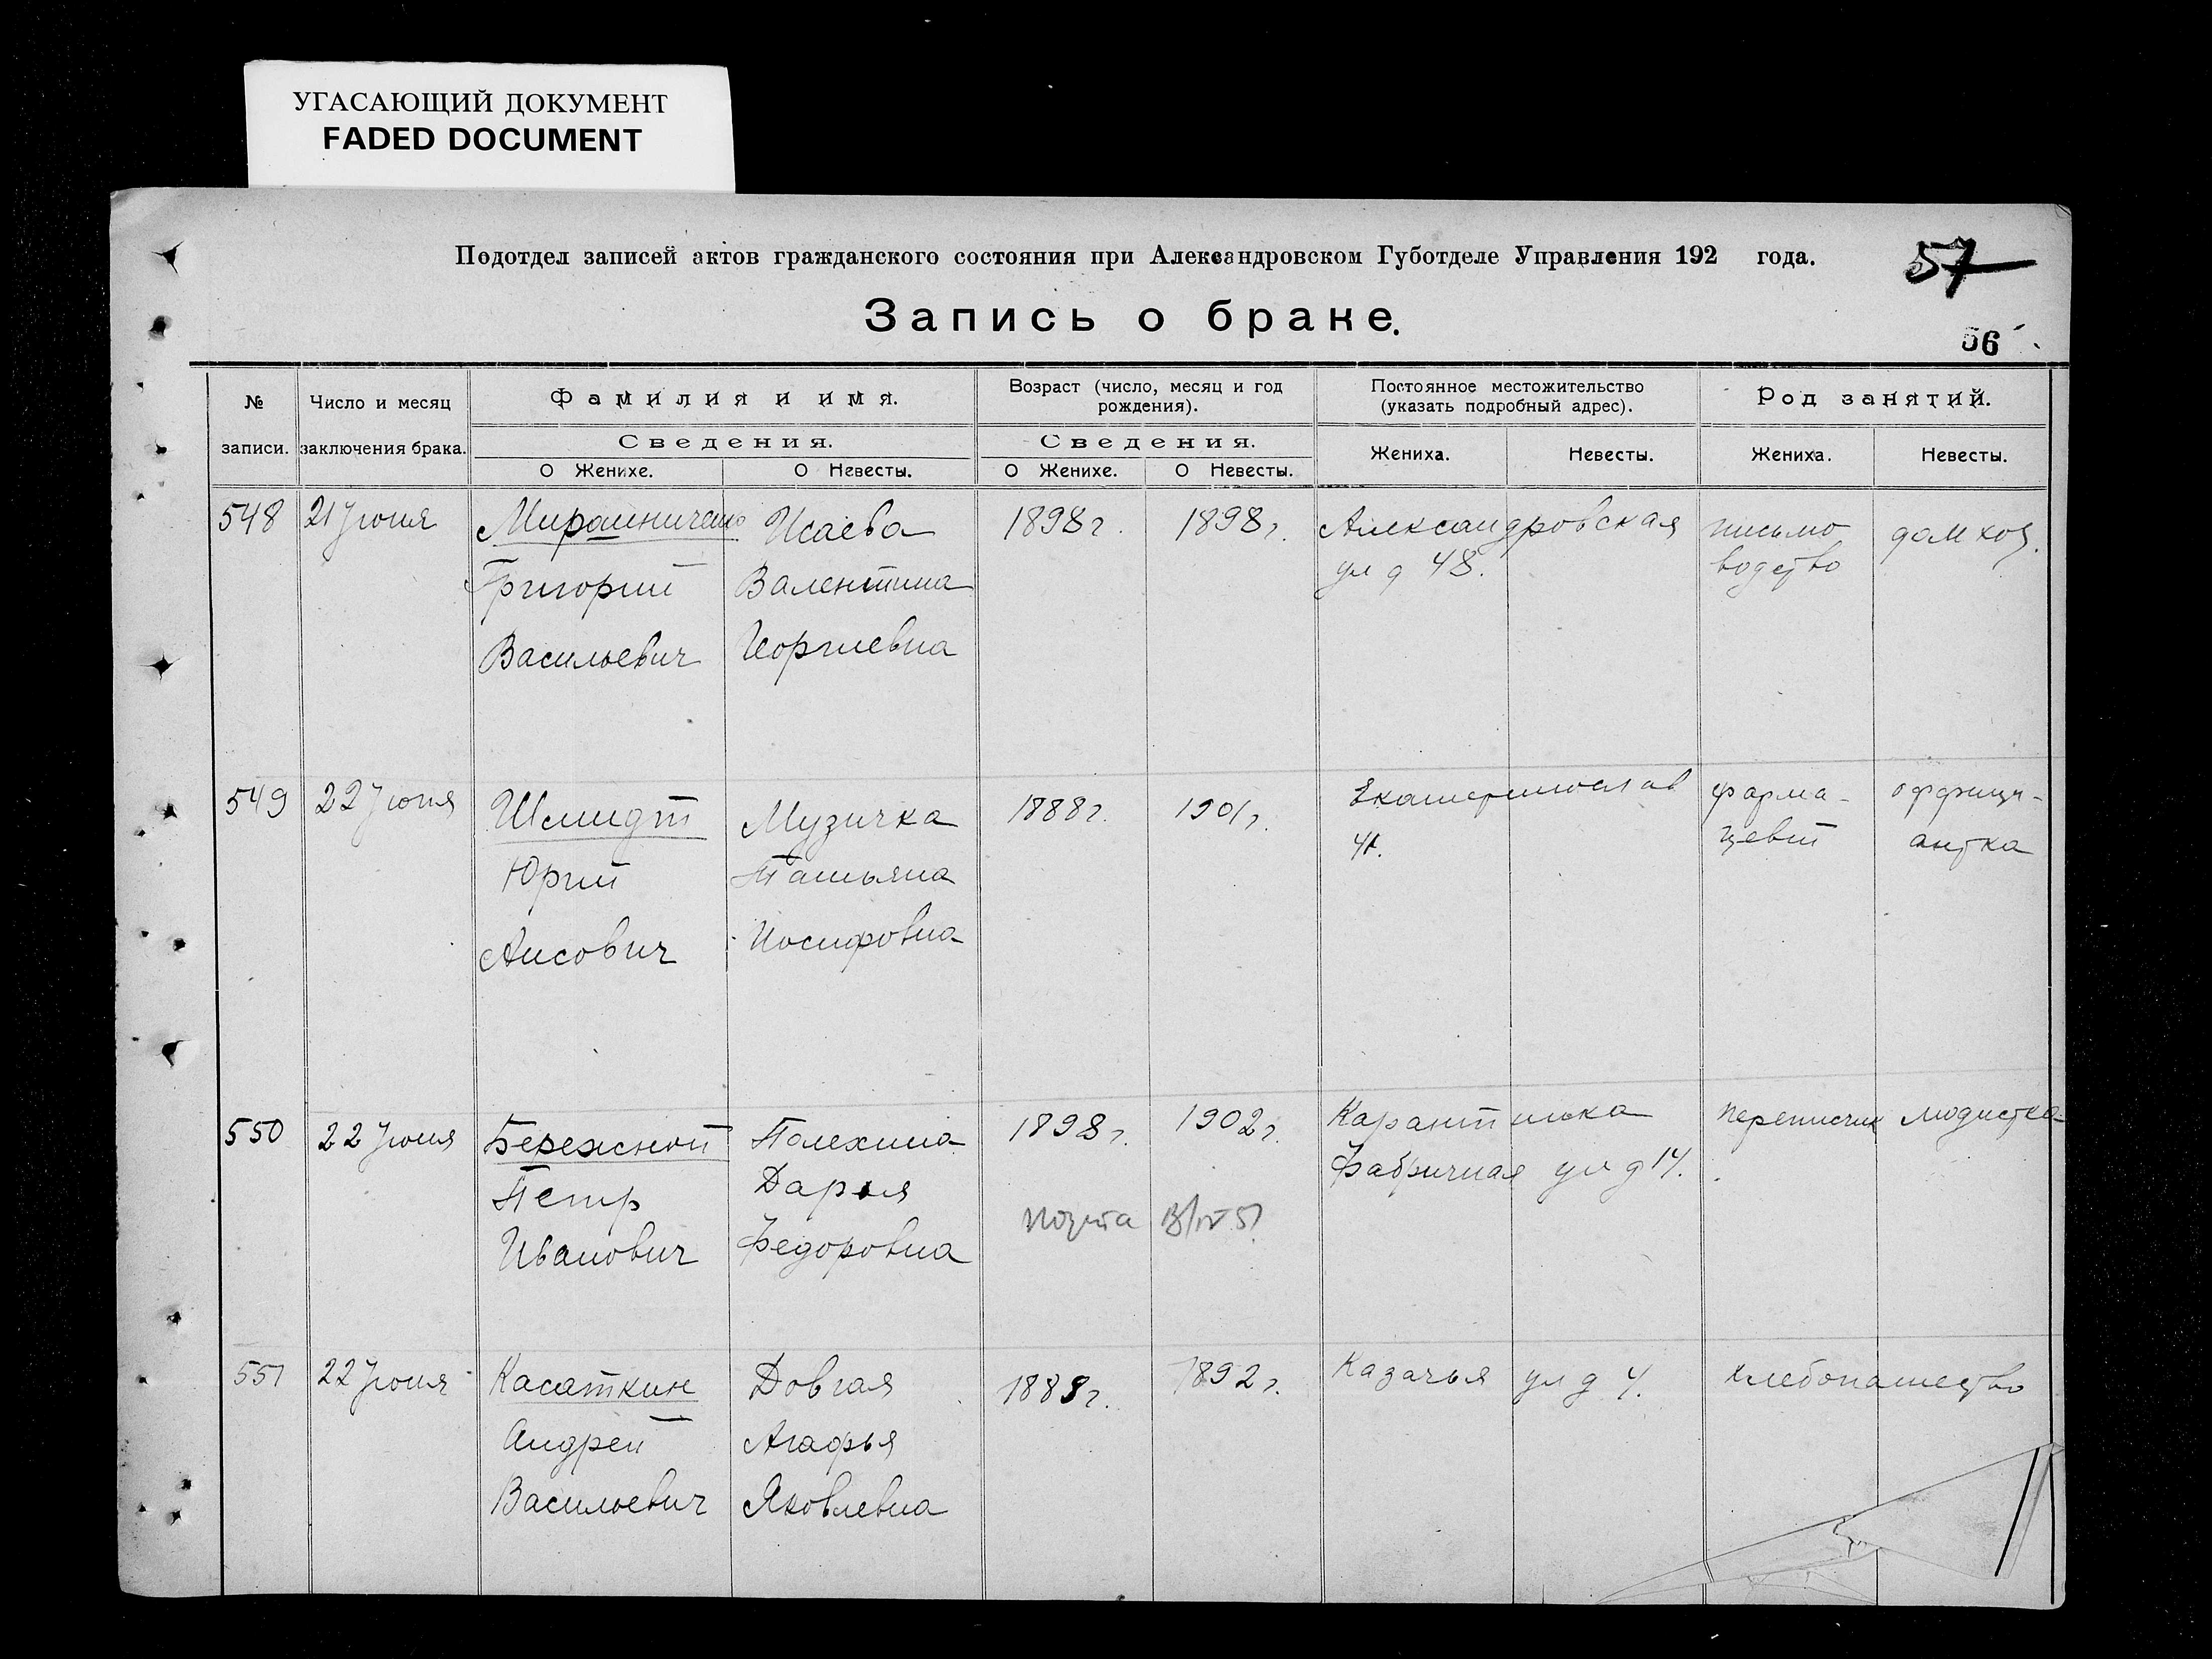 УГАСАЮЩИЙ ДОКУМЕНТ
FADED DOCUMENT
Подотдел записей актов гражданского состояния при Александровском Губотделе Управления 192 года.
57
Запись о браке.
56
№ записи.
Число и месяц заключения брака.
Фамилия и имя.
Сведения.
О Женихе.
О Невесты.
Возраст (число, месяц и год рождения).
Сведения.
О Женихе.
О Невесты.
Постоянное местожительство (указать подробный адрес).
Жениха.
Невесты.
Род занятий.
Жениха.
Невесты.
548 21 Июня Мирошниченко Исаева 1898 г. 1898 г. Александровская письмо дом хоз.
ул д 48. водство
Григорий Валентина
Васильевич Георгиевна
549 22 Июня Шмидт Музичка 1888 г. 1901 г. Екатеринослав фарма- оффици-
41. цевт антка
Юрий Татьяна
Иосифовна
550 22 Июня Бережной Полехина 1898 г. 1902 г. Карантинка переписчик модистка
Фабричная ул д 14.
Петр Дарья
Иванович Федоровна
551 22 Июня Касаткин Довгая 1889 г. 1892 г. Казачья ул д 4. хлебопашество
Андрей Агафья
Васильевич Яковлевна